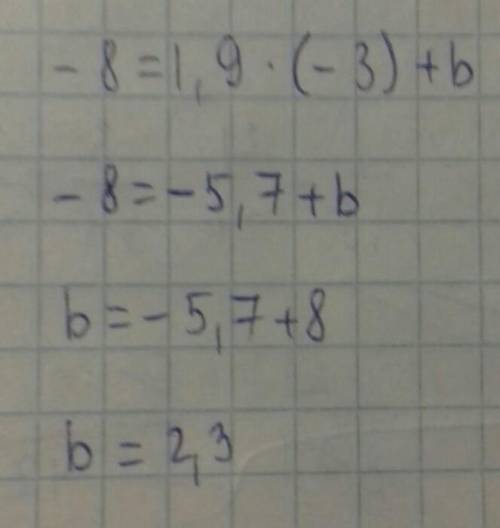 - 8 = 1,9 · (- 3) + b
- 8 = - 5,7 + b
b = - 5,7 + 8
b = 2,3